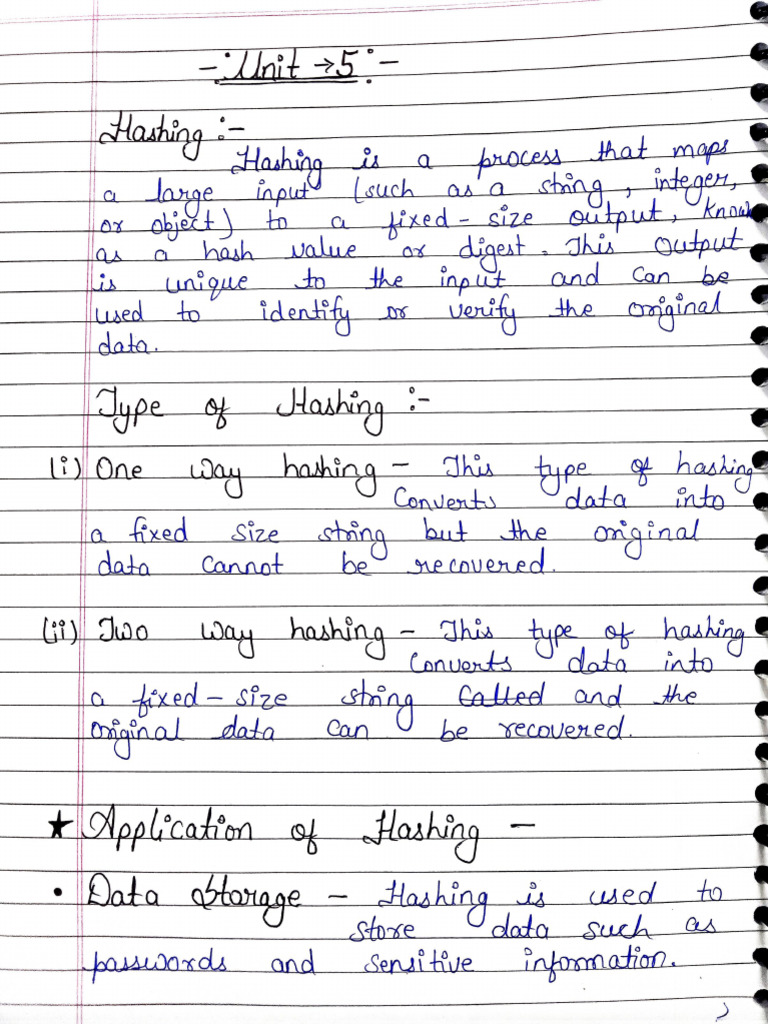 -: Unit → 5 :-
Hashing :-
Hashing is a process that maps
a large input (such as a string, integer,
or object) to a fixed-size output, know
as a hash value or digest. This output
is unique to the input and can be
used to identify or verify the original
data.
Type of Hashing :-
(i) One way hashing - This type of hashing
converts data into
a fixed size string but the original
data cannot be recovered.
(ii) Two way hashing - This type of hashing
converts data into
a fixed-size string called and the
original data can be recovered.
★ Application of Hashing -
• Data Storage - Hashing is used to
store data such as
passwords and sensitive information.